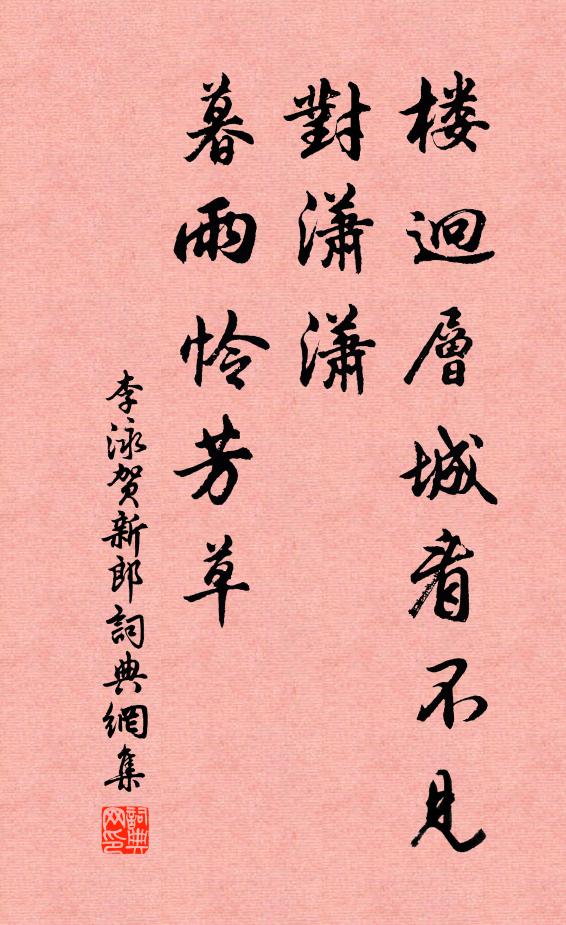 楼迥層城看不見
對瀟瀟
暮雨怜芳草
李泳贺新郎詞典網集
詞典网印